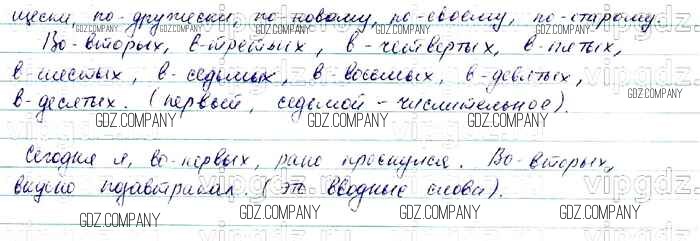 щески, по-дружески, по-новому, по-своему, по-старому.
Во-вторых, в-третьих, в-четвертых, в-пятых,
в-шестых, в-седьмых, в-восьмых, в-девятых,
в-десятых. (первый, седьмой - числительное).
GDZ.COMPANY GDZ.COMPANY GDZ.COMPANY GDZ.COMPANY
Сегодня я, во-первых, рано проснулся. Во-вторых,
вкусно позавтракал. (это вводные слова).
GDZ.COMPANY GDZ.COMPANY GDZ.COMPANY GDZ.COMPANY